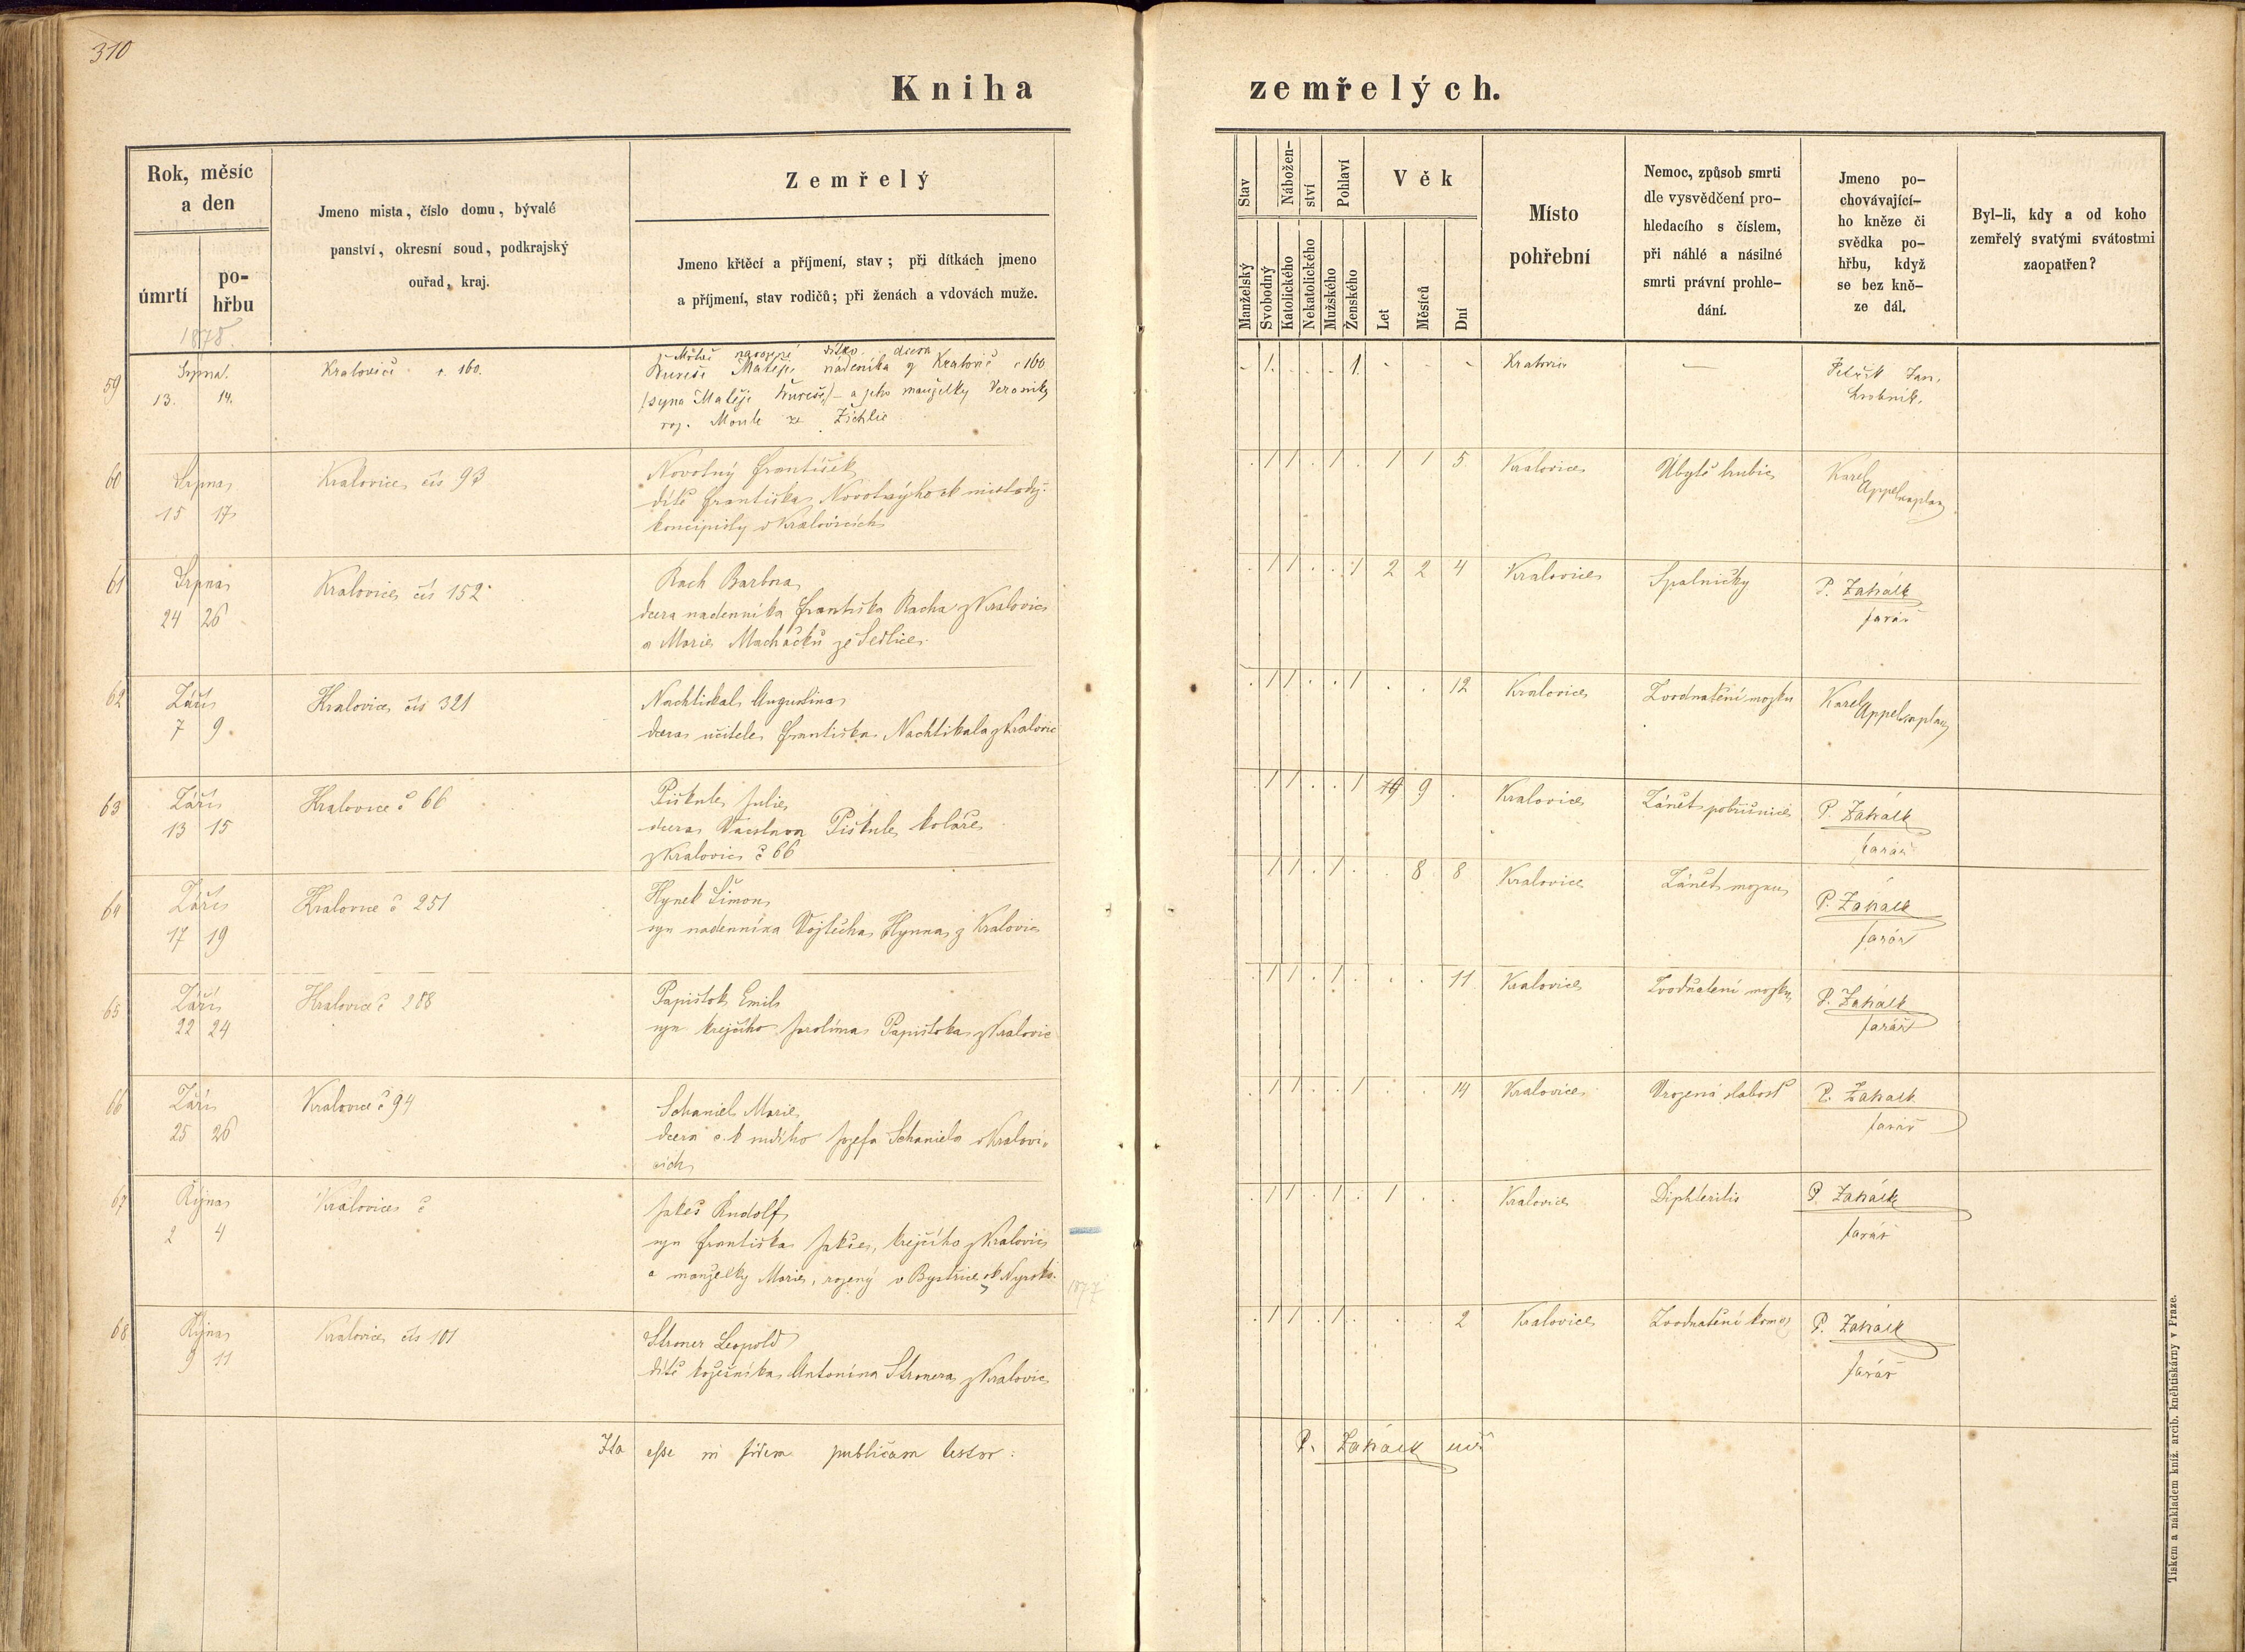 310
Kniha zemřelých.
Rok, měsíc
a den
úmrtí
po-
hřbu
1878.
Jmeno mista, číslo domu, bývalé
panství, okresní soud, podkrajský
ouřad, kraj.
Zemřelý
Jmeno křtěcí a příjmení, stav; při dítkách jmeno
a příjmení, stav rodičů; při ženách a vdovách muže.
Stav
Nábožen-
ství
Pohlaví
Věk
Manželský
Svobodný
Katolického
Nekatolického
Mužského
Ženského
Let
Měsíců
Dní
Místo
pohřební
Nemoc, způsob smrti
dle vysvědčení pro-
hledacího s číslem,
při náhlé a násilné
smrti právní prohle-
dání.
Jmeno po-
chovávající-
ho kněze či
svědka po-
hřbu, když
se bez kně-
ze dál.
Byl-li, kdy a od koho
zemřelý svatými svátostmi
zaopatřen?
59 Srpna 13. 14.
Kralovice č. 160.
Mrtvě narozené dítko dcera
Kureše Matěje nádeníka z Kralovic č 160
(syna Matěje Kureše) a jeho manželky Veroniky
roz. Moule ze Žichlic
- 1. . . . 1. - - -
Kralovice
Petřík Jan,
hrobník.
60 Srpna 15 17
Kralovice čís 93
Novotný František
dítě Františka Novotnýho ck místodrž.
koncipisty v Kralovicích
. 1 1 . 1 . 1 1 5
Kralovice
Úbytě hrubic
Karel
Appel kaplan
61 Srpna 24 26
Kralovice čís 152
Rach Barbora
dcera nadenníka Františka Racha z Kralovic
a Marie Macháčků ze Sedlice
. 1 1 . . 1 2 2 4
Kralovice
Spalničky
P. Zahálk
farář
62 Září 7 9
Kralovice čís 321
Nachtikal Augustina
dcera učitele Františka Nachtikala z Kralovic
. 1 1 . . 1 . . 12
Kralovice
Zvodnatění mozku
Karel
Appel kaplan
63 Září 13 15
Kralovice č 66
Piškule Julie
dcera Václava Piškule koláře
z Kralovic č 66
. 1 1 . . 1 9 .
Kralovice
Zánět pobřišnice
P. Zahálk
farář
64 Září 17 19
Kralovice č 251
Hynek Šimon
syn nadenníka Vojtěcha Hynka z Kralovic
1 1 . 1 . . 8 8
Kralovice
Zánět mozku
P. Zahálk
farář
65 Září 22 24
Kralovice č 288
Papistok Emil
syn krejčího Jarolíma Papistoka z Kralovic
. 1 1 . 1 . . . 11
Kralovice
Zvodnatění mozku
P. Zahálk
farář
66 Září 25 26
Kralovice č 94
Schaniel Marie
dcera c. k Josefa Schaniela v Kralovi-
cích
. 1 1 . . 1 . . 14
Kralovice
Vrozená slabost
P. Zahalk
farář
67 Října 2 4
Kralovice č
Jakeš Rudolf
syn Františka Jakše, krejčího z Kralovic
a manželky Marie, rozený v Bystřice ok Nyrsko.
1877
. 1 1 . 1 . 1 . .
Kralovice
Diphteritis
P. Zahálk
farář
68 Října 9 11
Kralovice čís 101
Stroner Leopold
dítě kožešníka Antonína Stronera z Kralovic
. 1 1 . 1 . . . 2
Kralovice
Zvodnatění
P. Zahálk
farář
Ita esse in fidem publicam testor:
P. Zahálk
Tiskem a nákladem kníž. arcib. kněhtiskárny v Praze.